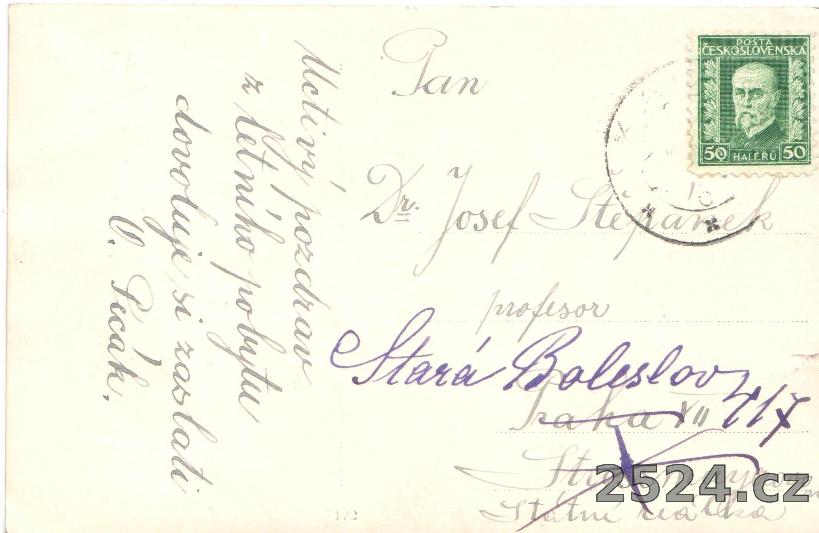 Uctivý pozdrav
z letního pobytu
dovoluje si zaslati
O. Pecák.
Pan
Dr. Josef Štěpánek
profesor
Stará Boleslav 417
Praha VII
Státní reálka
POŠTA
ČESKOSLOVENSKÁ
50 HALÉŘŮ 50
172
2524.cz